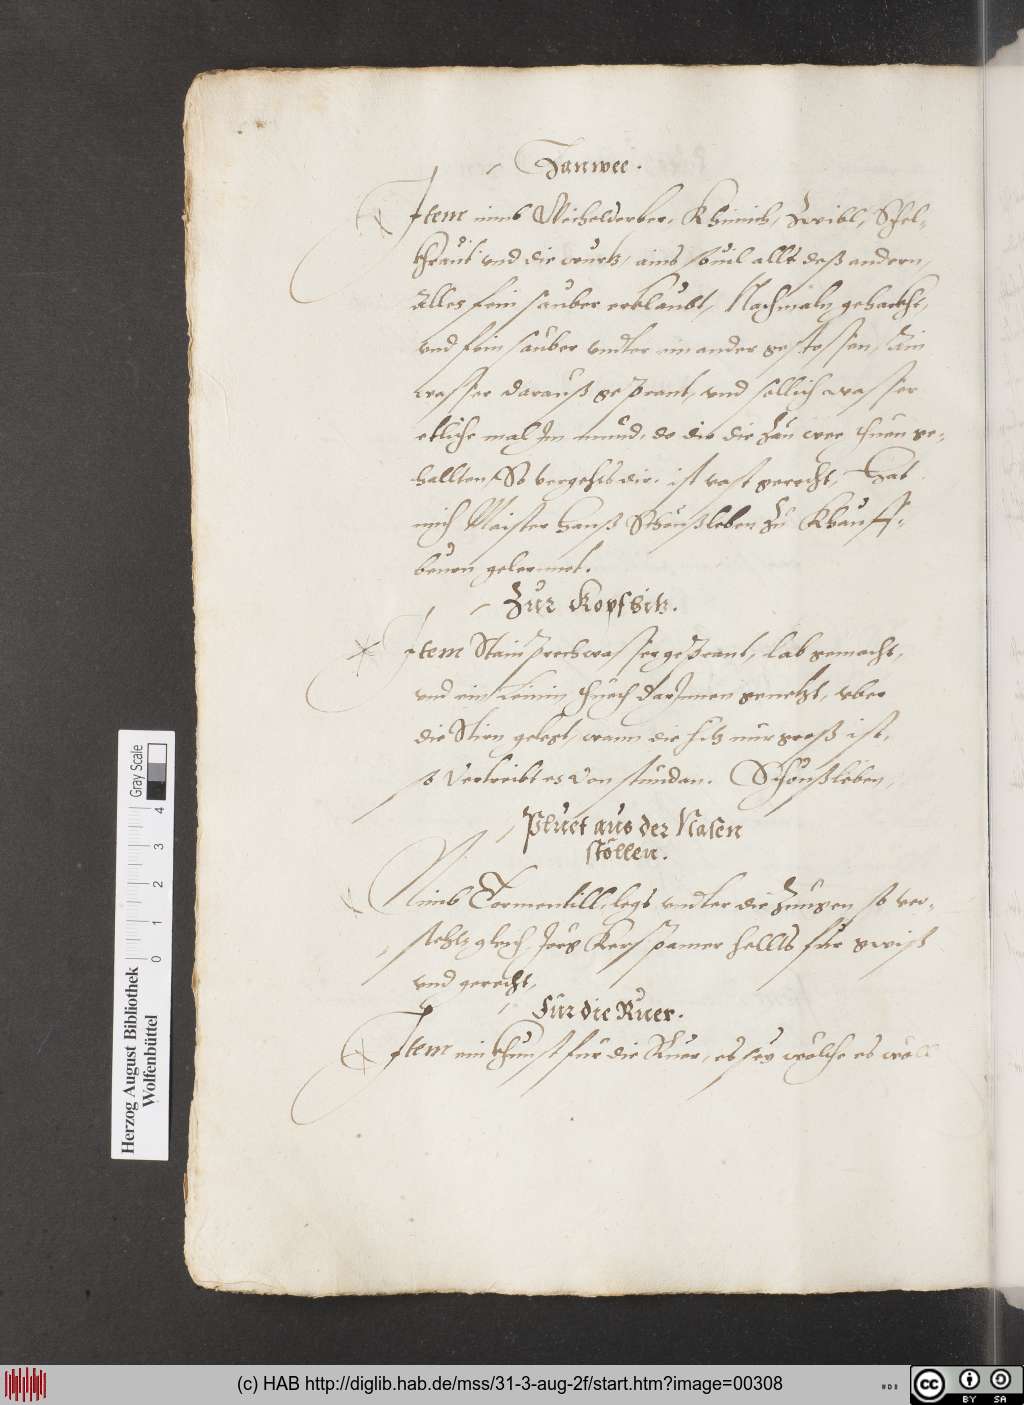 Zanwee.
Item nimb Wecholderber, Khimich, Zwibl, Schel-
khraut und die wurtz, ains souil alls deß andern,
Alles fein sauber erklaubt, Nachmalz gehackht,
und fein sauber undter ein ander gestossen, Ain
wasser darauß geprant, und sollich wasser
etliche mal Im mund, do dir die Zän wee thuen ge-
hallten, So vergehts dir. ist vast gerecht, Hat
mich Maister Hanß Scheußleben zu Khauff-
beurn gelernnet.
Zur Kopfhitz.
Item Stainprechwasser geprant, lab gemacht,
und ein tuech darInnen genetzt, uber
die Stirn gelegt, wann die hitz nur groß ist,
so vertreibt es von stundan. Scheußleben,
Pluet aus der Nasen
stöllen.
Nimb Tormentill, legs undter die Zungen so ver-
stehtz gleich, Jörg Kerspamer hellts für gwiß
und gerecht,
für die Ruer.
Item ein khunst für die Ruer, es sey wölche es wöll
Herzog August Bibliothek
Wolfenbüttel
0 1 2 3 4
Gray Scale
(c) HAB http://diglib.hab.de/mss/31-3-aug-2f/start.htm?image=00308
cc BY SA